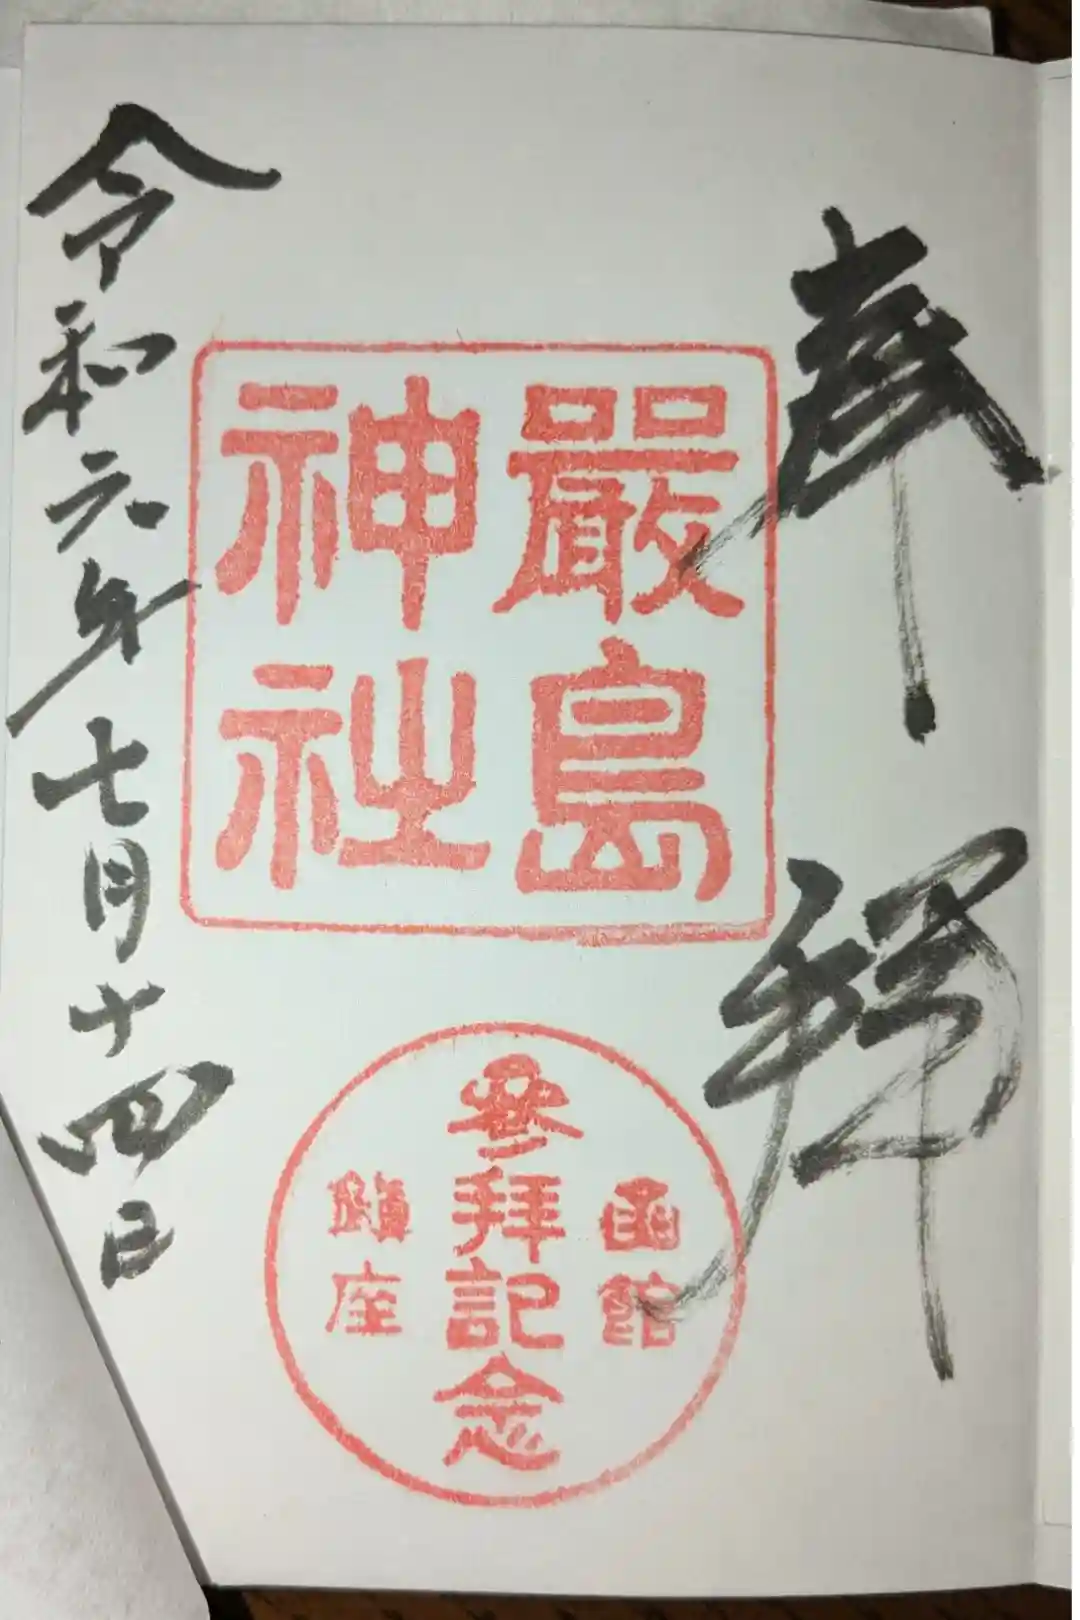 奉拝
嚴島
神社
函館
參拝記念
鎮座
令和六年七月十四日